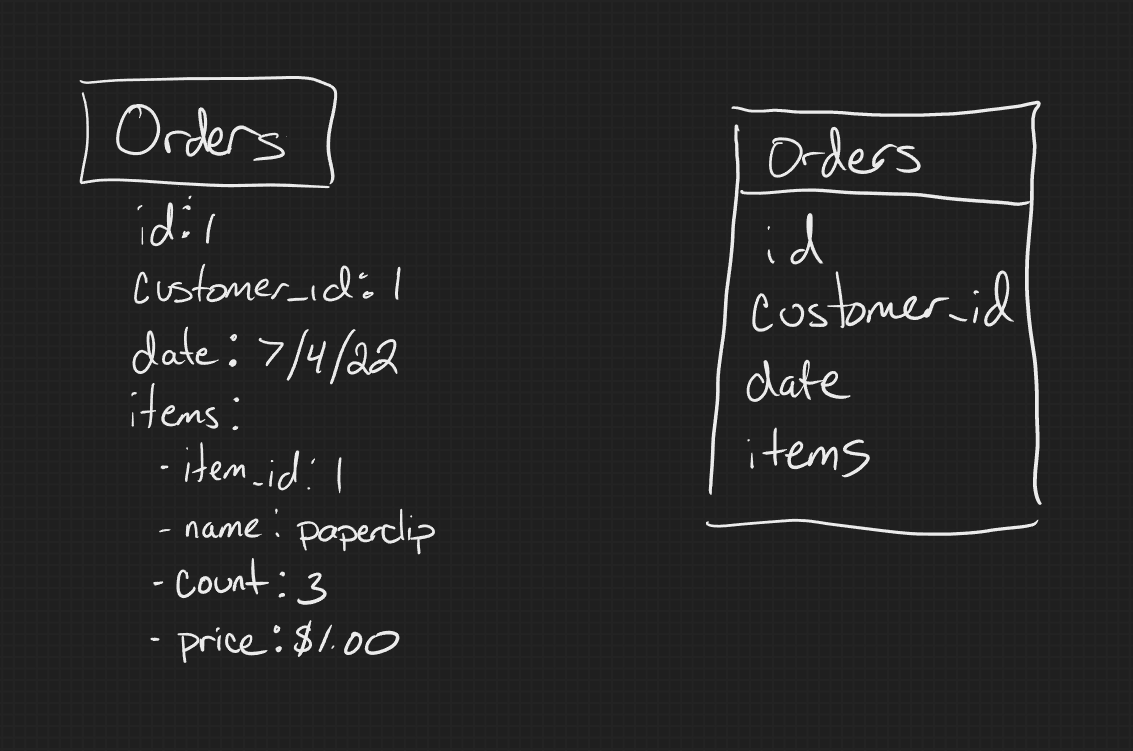 Orders
id: 1
customer_id: 1
date: 7/4/22
items:
- item_id: 1
- name: paperclip
- count: 3
- price: $1.00
Orders
id
customer_id
date
items